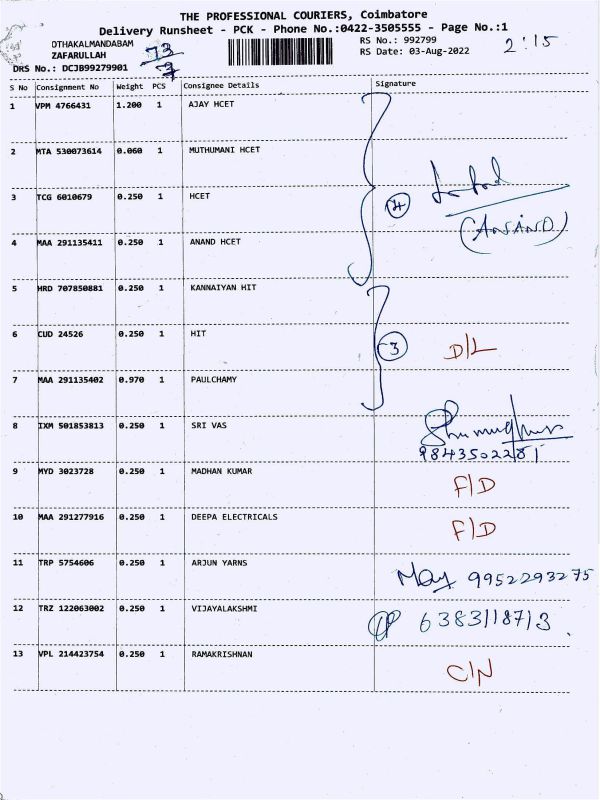 THE PROFESSIONAL COURIERS, Coimbatore
Delivery Runsheet - PCK - Phone No.:0422-3505555 - Page No.:1
OTHAKALMANDABAM
RS No.: 992799
2:15
ZAFARULLAH
RS Date: 03-Aug-2022
DRS No.: DCJB99279901
S No Consignment No Weight PCS Consignee Details Signature
1 VPM 4766431 1.200 1 AJAY HCET
2 MTA 530073614 0.060 1 MUTHUMANI HCET
3 TCG 6010679 0.250 1 HCET
4 MAA 291135411 0.250 1 ANAND HCET
(ANAND)
5 HRD 707850881 0.250 1 KANNAIYAN HIT
6 CUD 24526 0.250 1 HIT 3 D/L
7 MAA 291135402 0.970 1 PAULCHAMY
8 IXM 501853813 0.250 1 SRI VAS
9843502281
9 MYD 3023728 0.250 1 MADHAN KUMAR F/D
10 MAA 291277916 0.250 1 DEEPA ELECTRICALS F/D
11 TRP 5754606 0.250 1 ARJUN YARNS 9952293275
12 TRZ 122063002 0.250 1 VIJAYALAKSHMI 6383118713
13 VPL 214423754 0.250 1 RAMAKRISHNAN C/N